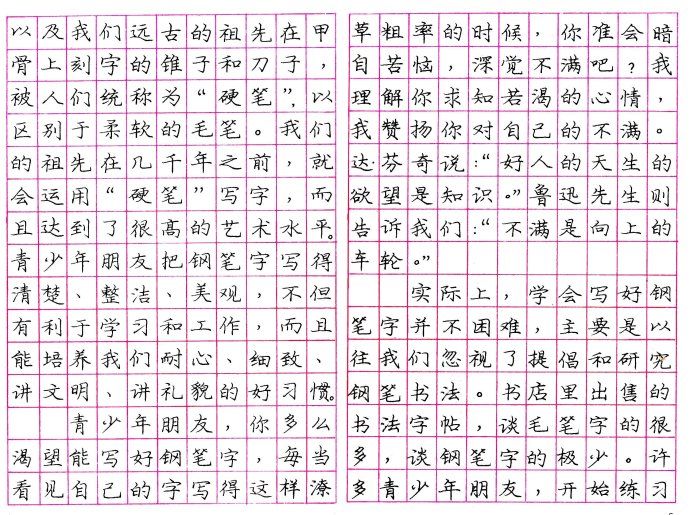 以及我们远古的祖先在甲
骨上刻字的锥子和刀子，
被人们统称为“硬笔”，以
区别于柔软的毛笔。我们
的祖先在几千年之前，就
会运用“硬笔”写字，而
且达到了很高的艺术水平。
青少年朋友把钢笔字写得
清楚、整洁、美观，不但
有利于学习和工作，而且
能培养我们耐心、细致、
讲文明、讲礼貌的好习惯。
青少年朋友，你多么
渴望能写好钢笔字，每当
看见自己的字写得这样潦
草粗率的时候，你准会暗
自苦恼，深觉不满吧？我
理解你求知若渴的心情，
我赞扬你对自己的不满。
达·芬奇说：“好人的天生的
欲望是知识。”鲁迅先生则
告诉我们：“不满是向上的
车轮。”
实际上，学会写好钢
笔字并不困难，主要是以
往我们忽视了提倡和研究
钢笔书法。书店里出售的
书法字帖，谈毛笔字的很
多，谈钢笔字的极少。许
多青少年朋友，开始练习